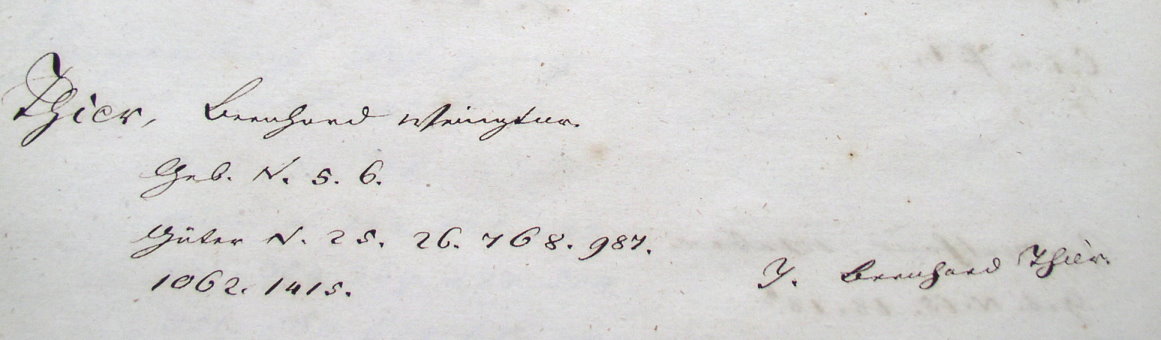 Thier, Bernhard Weingtnr.
Geb. N. 5. 6.
Güter N. 25. 26. 768. 987.
1062. 1415.
J. Bernhard Thier.